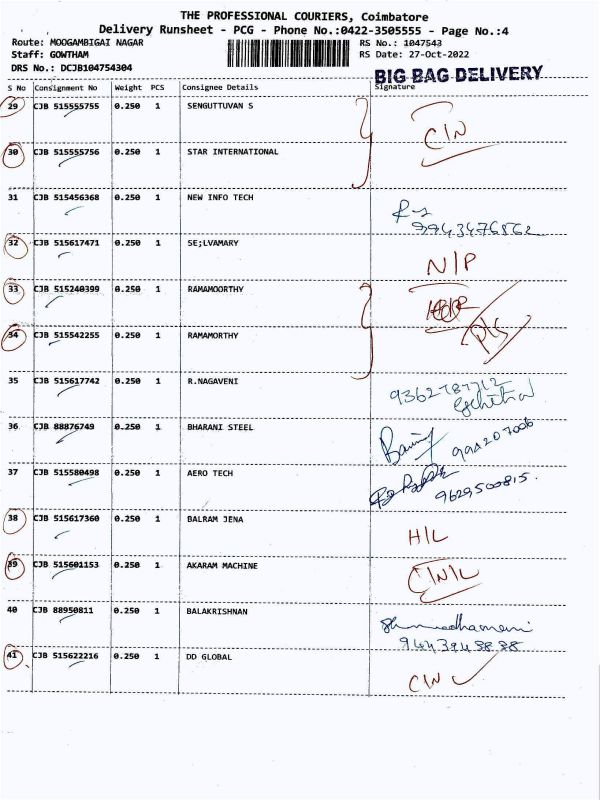 THE PROFESSIONAL COURIERS, Coimbatore
Delivery Runsheet - PCG - Phone No.:0422-3505555 - Page No.:4
Route: MOOGAMBIGAI NAGAR RS No.: 1047543
Staff: GOWTHAM RS Date: 27-Oct-2022
DRS No.: DCJB104754304
BIG BAG DELIVERY
S No Consignment No Weight PCS Consignee Details Signature
29 CJB 515555755 0.250 1 SENGUTTUVAN S
C/N
30 CJB 515555756 0.250 1 STAR INTERNATIONAL
31 CJB 515456368 0.250 1 NEW INFO TECH
9943476862
32 CJB 515617471 0.250 1 SE;LVAMARY
N/P
33 CJB 515240399 0.250 1 RAMAMOORTHY
34 CJB 515542255 0.250 1 RAMAMORTHY
35 CJB 515617742 0.250 1 R.NAGAVENI
36 CJB 88876749 0.250 1 BHARANI STEEL
37 CJB 515580498 0.250 1 AERO TECH
9629500815.
38 CJB 515617360 0.250 1 BALRAM JENA
H/L
39 CJB 515601153 0.250 1 AKARAM MACHINE
40 CJB 88950811 0.250 1 BALAKRISHNAN
41 CJB 515622216 0.250 1 DD GLOBAL
C/N